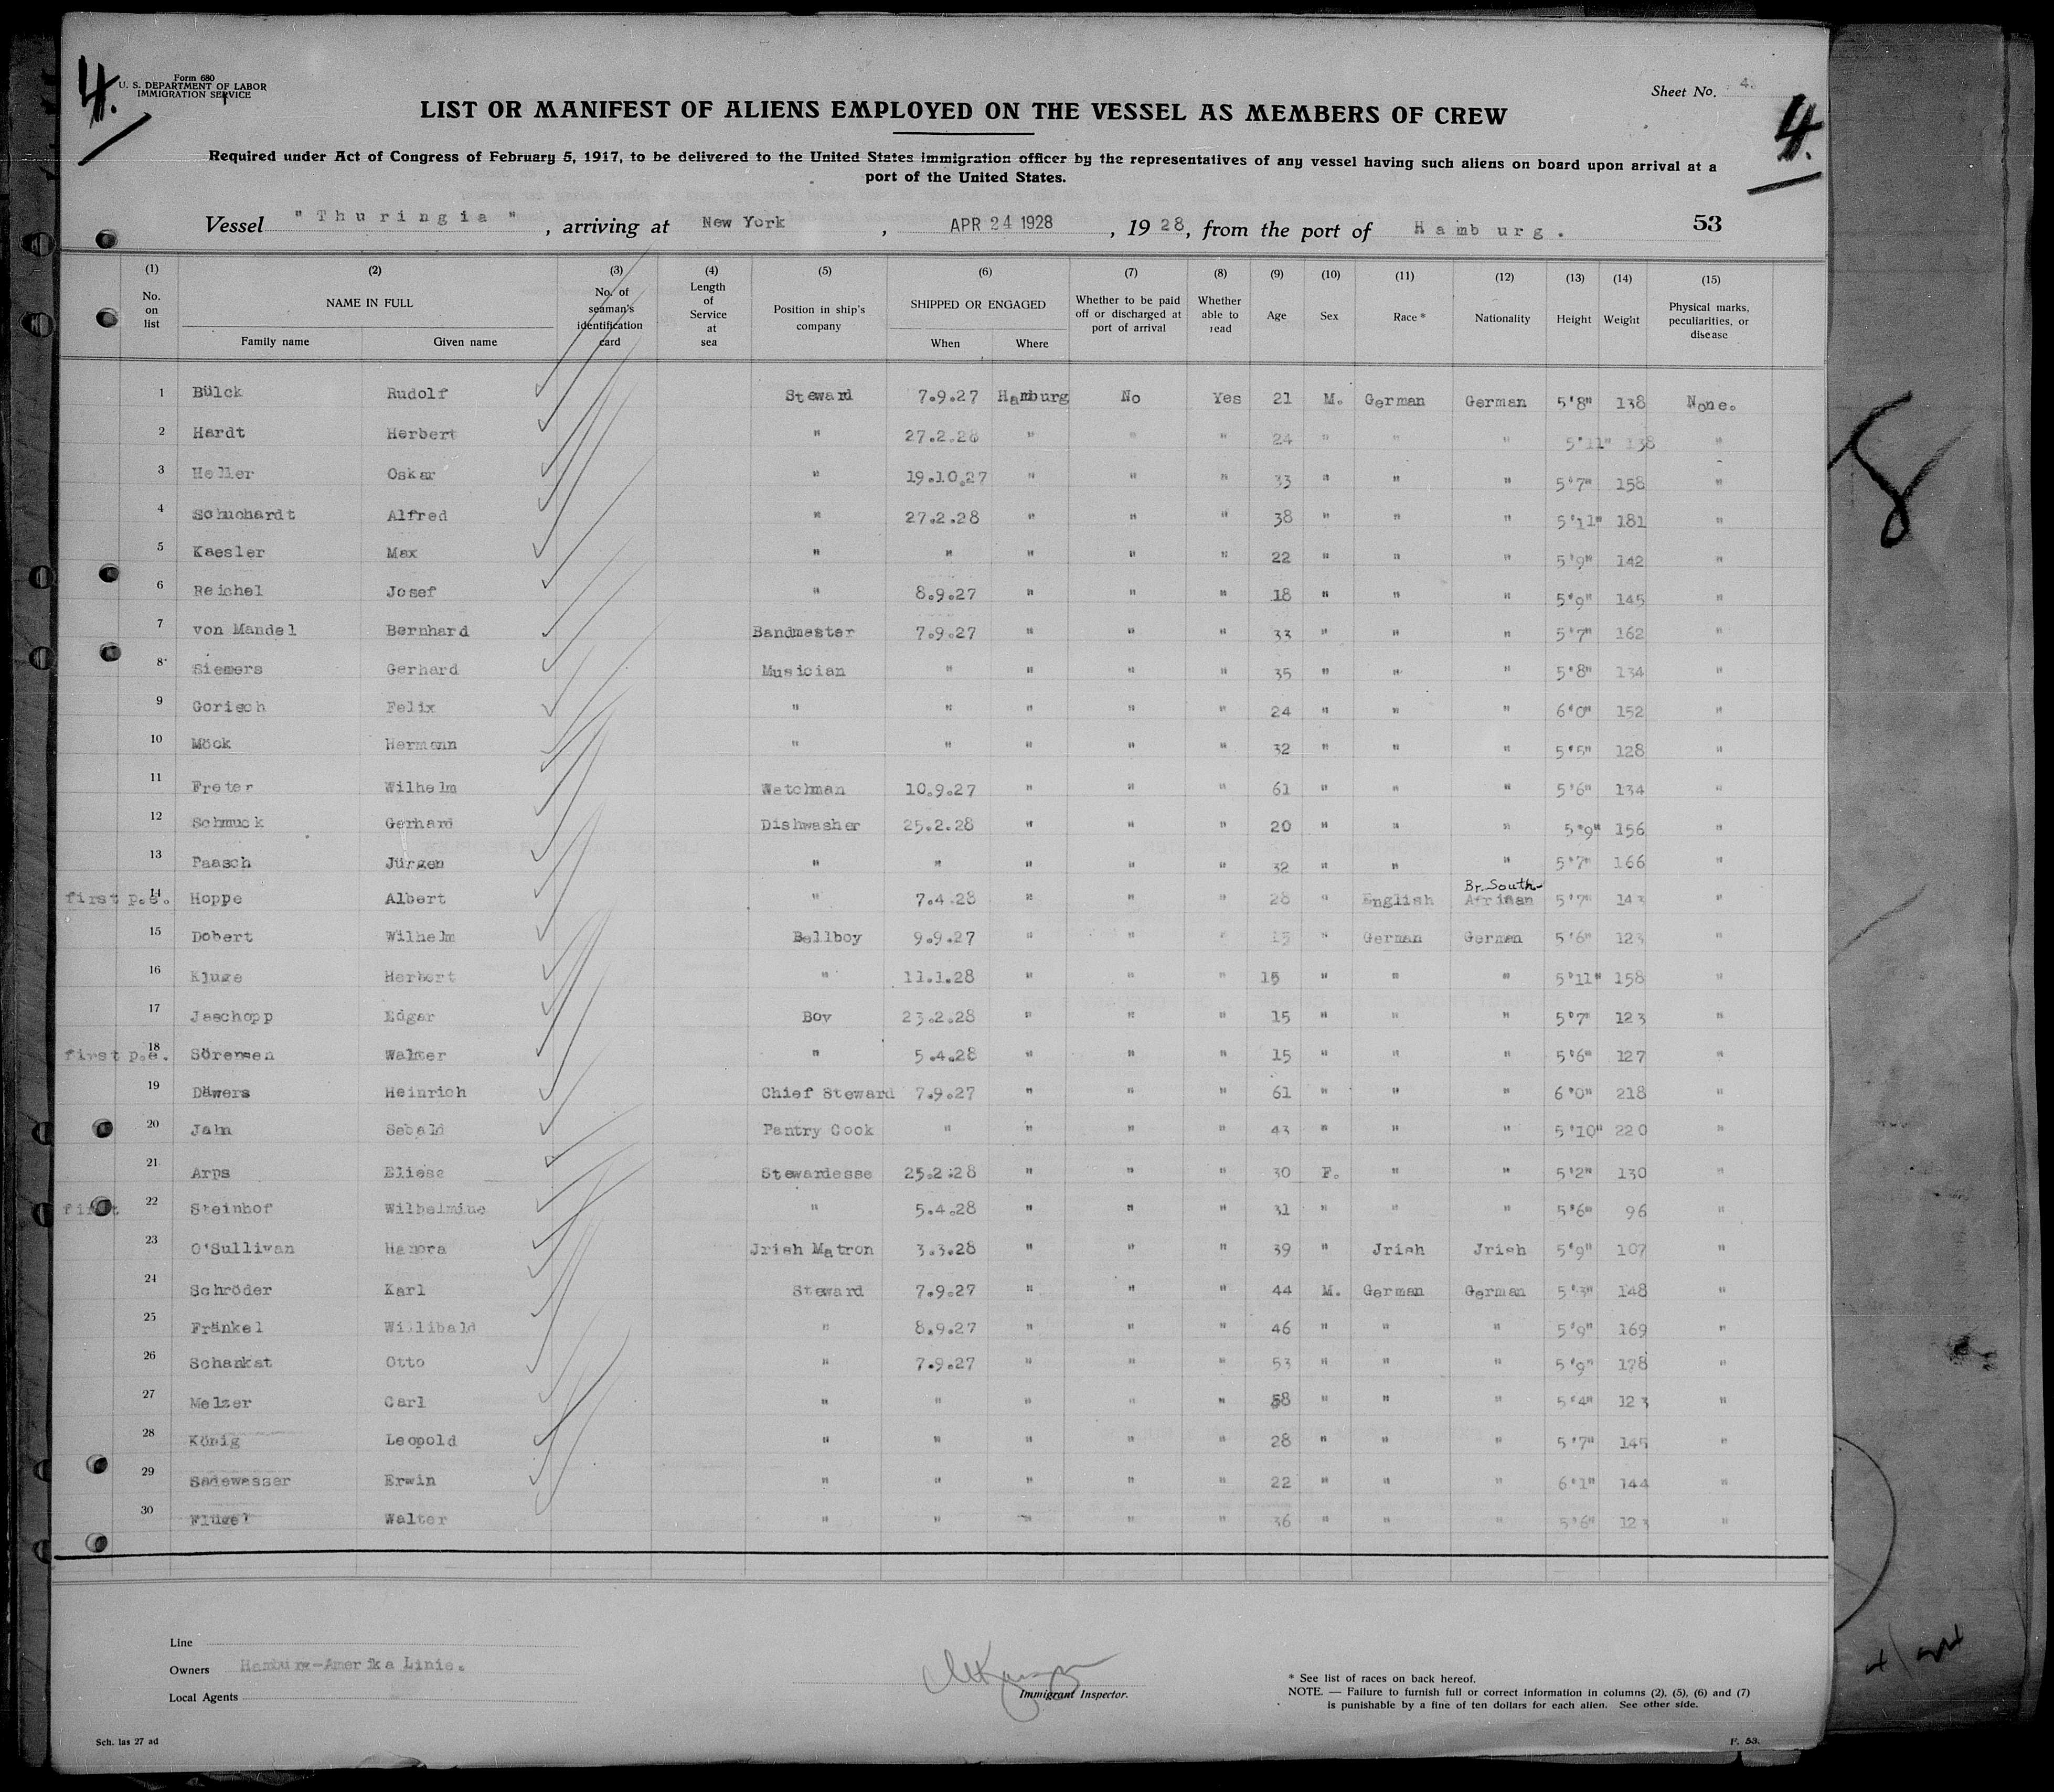 4.
Form 680
U. S. DEPARTMENT OF LABOR
IMMIGRATION SERVICE
Sheet No. 4.
4.
LIST OR MANIFEST OF ALIENS EMPLOYED ON THE VESSEL AS MEMBERS OF CREW
Required under Act of Congress of February 5, 1917, to be delivered to the United States immigration officer by the representatives of any vessel having such aliens on board upon arrival at a
port of the United States.
Vessel "Thuringia", arriving at New York, APR 24 1928, 1928, from the port of Hamburg. 53
(1) (2) (3) (4) (5) (6) (7) (8) (9) (10) (11) (12) (13) (14) (15)
No. on list NAME IN FULL Family name Given name No. of seaman's identification card Length of Service at sea Position in ship's company SHIPPED OR ENGAGED When Where Whether to be paid off or discharged at port of arrival Whether able to read Age Sex Race * Nationality Height Weight Physical marks, peculiarities, or disease
1 Bülck Rudolf Steward 7.9.27 Hamburg No Yes 21 M. German German 5'8" 138 None.
2 Hardt Herbert " 27.2.28 " " " 24 " " " 5'11" 138 "
3 Heller Oskar " 19.10.27 " " " 33 " " " 5'7" 158 "
4 Schuchardt Alfred " 27.2.28 " " " 38 " " " 5'11" 181 "
5 Kaesler Max " " " " " 22 " " " 5'9" 142 "
6 Reichel Josef " 8.9.27 " " " 18 " " " 5'9" 145 "
7 von Mandel Bernhard Bandmaster 7.9.27 " " " 33 " " " 5'7" 162 "
8 Siemers Gerhard Musician " " " " 35 " " " 5'8" 134 "
9 Gorisch Felix " " " " " 24 " " " 6'0" 152 "
10 Möck Hermann " " " " " 32 " " " 5'5" 128 "
11 Freter Wilhelm Watchman 10.9.27 " " " 61 " " " 5'6" 134 "
12 Schmuck Gerhard Dishwasher 25.2.28 " " " 20 " " " 5'9" 156 "
13 Paasch Jürgen " " " " " 32 " " " 5'7" 166 "
first p.e. 14 Hoppe Albert " 7.4.28 " " " 28 " English Br. South- African 5'7" 143 "
15 Dobert Wilhelm Bellboy 9.9.27 " " " 15 " German German 5'6" 123 "
16 Kluge Herbert " 11.1.28 " " " 15 " " " 5'11" 158 "
17 Jaschopp Edgar Boy 23.2.28 " " " 15 " " " 5'7" 123 "
first p.e. 18 Sörensen Walter " 5.4.28 " " " 15 " " " 5'6" 127 "
19 Däwers Heinrich Chief Steward 7.9.27 " " " 61 " " " 6'0" 218 "
20 Jahn Sebald Pantry Cook " " " " 43 " " " 5'10" 220 "
21 Arps Eliese Stewardesse 25.2.28 " " " 30 F. " " 5'2" 130 "
first 22 Steinhof Wilhelmine " 5.4.28 " " " 31 " " " 5'6" 96 "
23 O'Sullivan Hanora Jrish Matron 3.3.28 " " " 39 " Jrish Jrish 5'9" 107 "
24 Schröder Karl Steward 7.9.27 " " " 44 M. German German 5'3" 148 "
25 Fränkel Willibald " 8.9.27 " " " 46 " " " 5'9" 169 "
26 Schankat Otto " 7.9.27 " " " 53 " " " 5'9" 178 "
27 Melzer Carl " " " " " 58 " " " 5'4" 123 "
28 König Leopold " " " " " 28 " " " 5'7" 145 "
29 Sadewasser Erwin " " " " " 22 " " " 6'1" 144 "
30 Flügel Walter " " " " " 36 " " " 5'6" 123 "
Line
Owners Hamburg-Amerika Linie.
Local Agents
Immigrant Inspector.
* See list of races on back hereof.
NOTE. — Failure to furnish full or correct information in columns (2), (5), (6) and (7)
is punishable by a fine of ten dollars for each alien. See other side.
Sch. las 27 ad
F. 53.
8
4/24